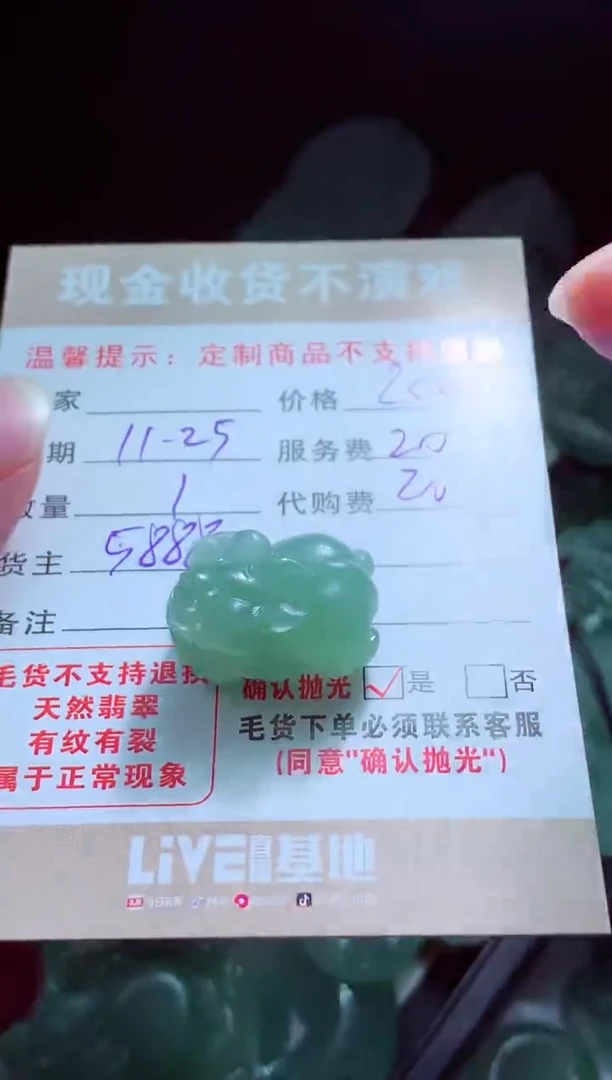 现金收货不演戏
温馨提示：定制商品不支持
家 价格
期 11-25 服务费 20
数量 1 代购费 20
货主 588
备注
毛货不支持退换
天然翡翠
有纹有裂
属于正常现象
确认抛光 是 否
毛货下单必须联系客服
(同意"确认抛光")
LIVE 基地